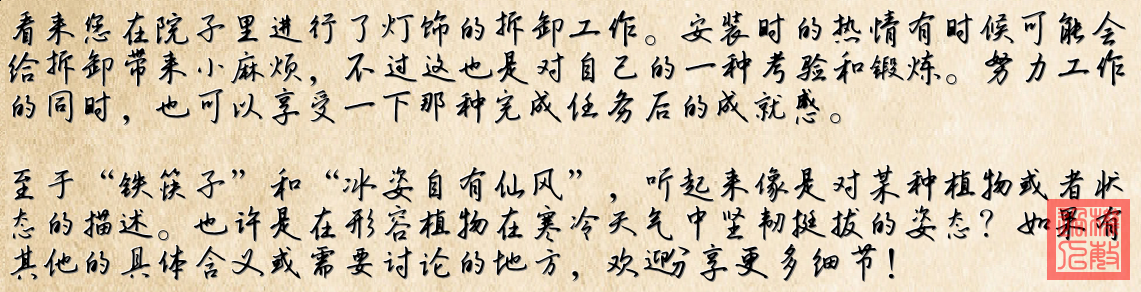 看来您在院子里进行了灯饰的拆卸工作。安装时的热情有时候可能会
给拆卸带来小麻烦，不过这也是对自己的一种考验和锻炼。努力工作
的同时，也可以享受一下那种完成任务后的成就感。
至于“铁筷子”和“冰姿自有仙风”，听起来像是对某种植物或者状
态的描述。也许是在形容植物在寒冷天气中坚韧挺拔的姿态？如果有
其他的具体含义或需要讨论的地方，欢迎分享更多细节！